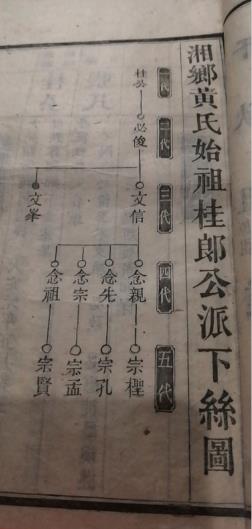 湘鄉黃氏始祖桂郎公派下絲圖
一代 二代 三代 四代 五代
必俊
文信
念親
文峯
念先 宗孔
念宗 宗孟
念祖 宗賢